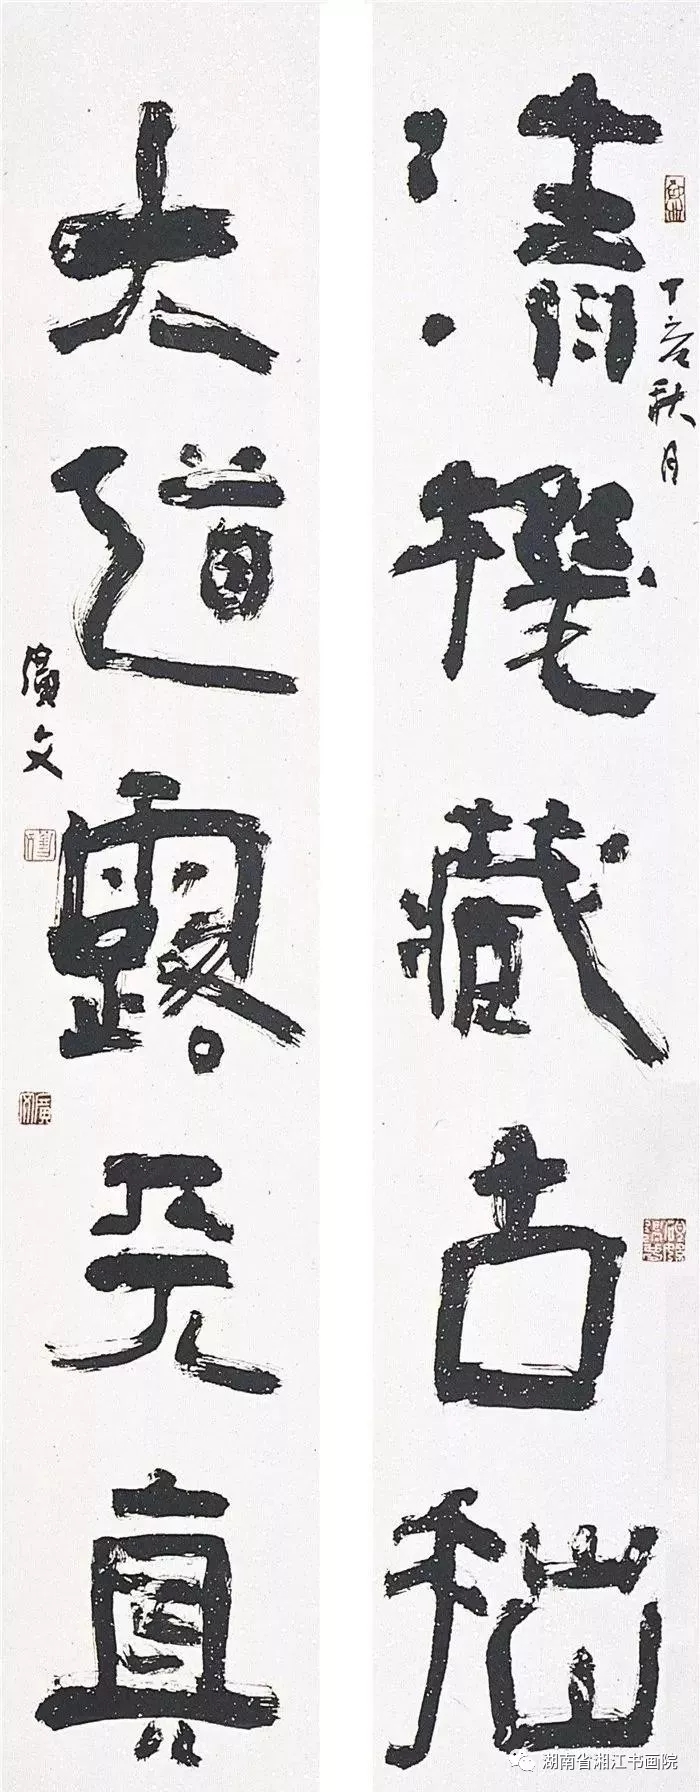 清機藏古拙
丁亥秋月
大道露天真
廣文
湖南省湘江书画院